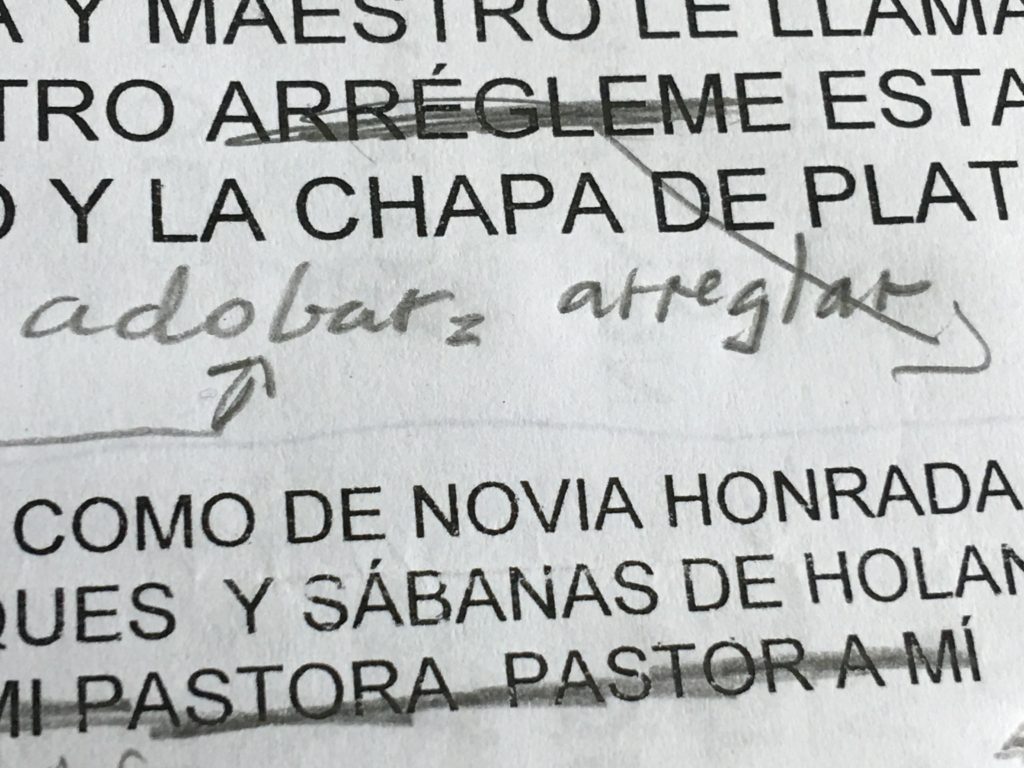 A Y MAESTRO LE LLAMA
TRO ARRÉGLEME ESTA
O Y LA CHAPA DE PLAT
adobar = arreglar
COMO DE NOVIA HONRADA
QUES Y SÁBANAS DE HOLAN
MI PASTORA PASTOR A MÍ